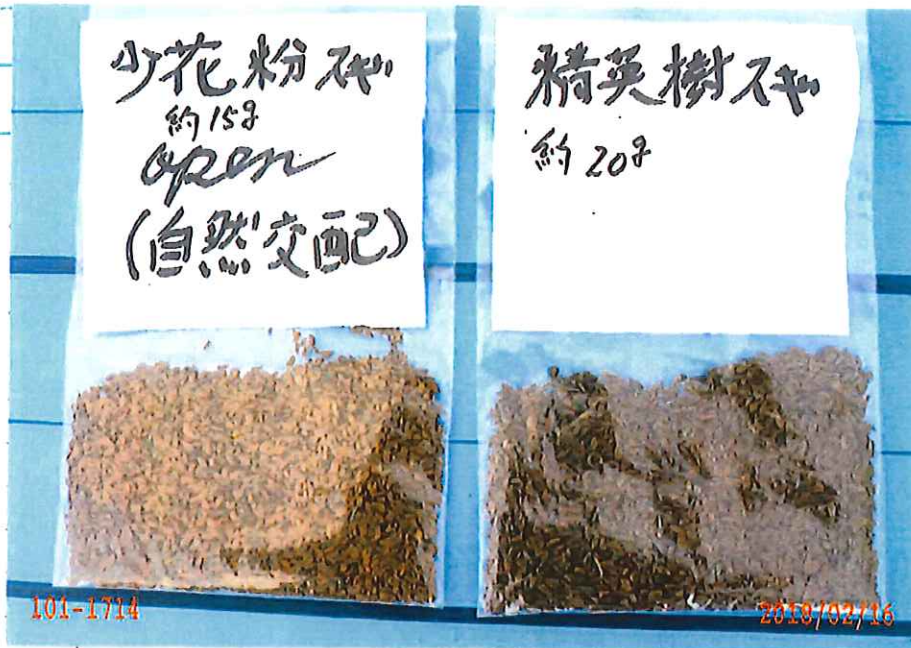 少花粉スギ
約15g
open
(自然交配)
精英樹スギ
約20g
101-1714
2018/02/16